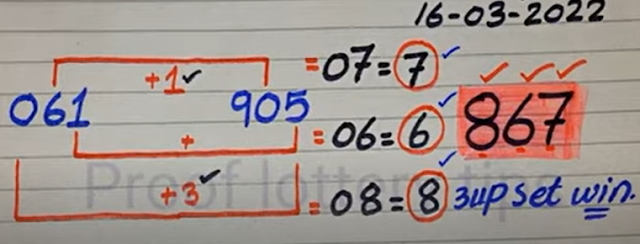 16-03-2022
+1✓ =07=7✓
061 905
+ =06=6✓ 867
+3✓ =08=8✓ 3up set win.
Proof lottery tips